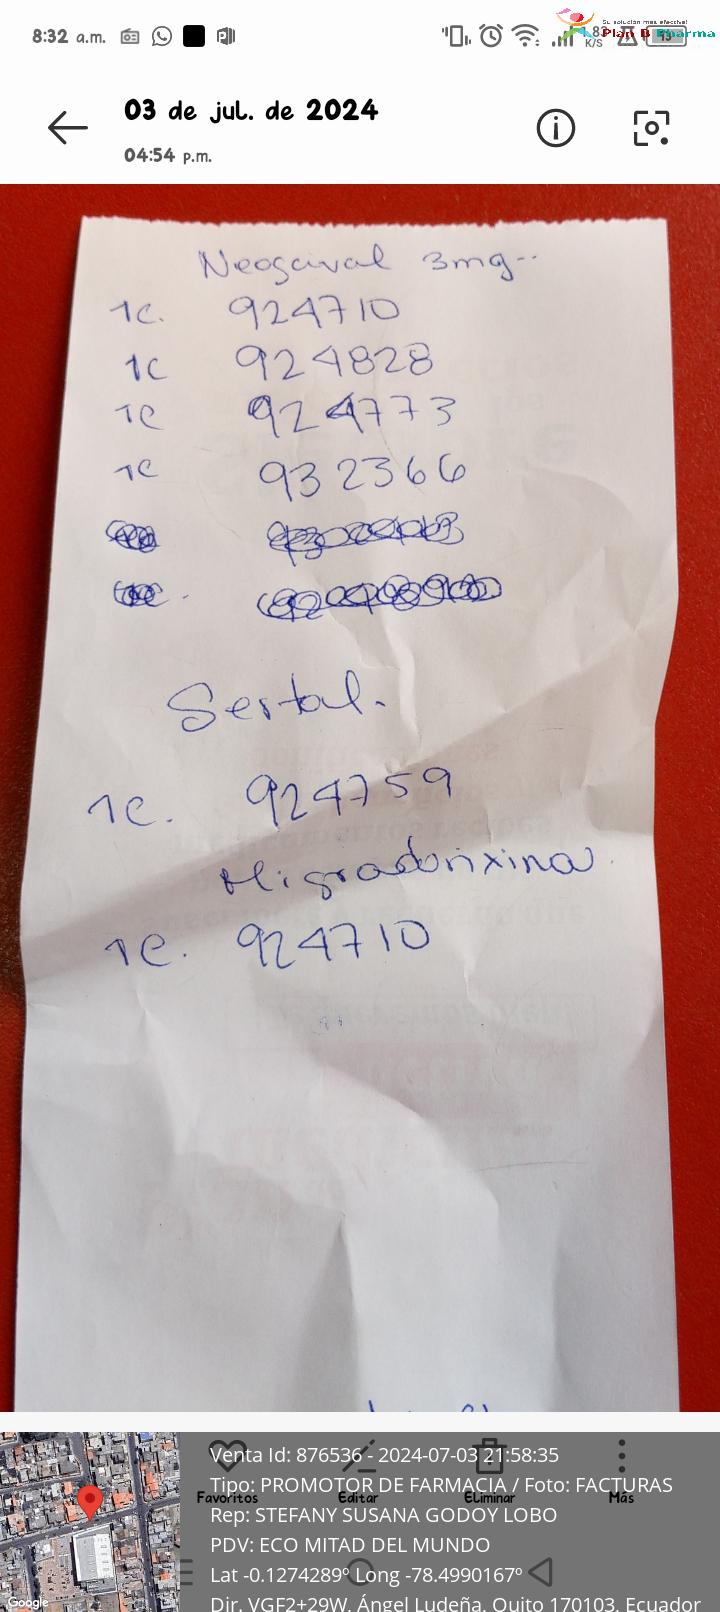 8:32 a.m.
83
K/S
13
Su solución más efectiva!
Plan B Pharma
03 de jul. de 2024
04:54 p.m.
Neogaival 3mg..
1c. 924710
1c 924828
1c 924773
1c 932366
Sertal.
1c. 924759
Migradorixina.
1c. 924710
Favoritos
Editar
Eliminar
Más
Venta Id: 876536 - 2024-07-03 21:58:35
Tipo: PROMOTOR DE FARMACIA / Foto: FACTURAS
Rep: STEFANY SUSANA GODOY LOBO
PDV: ECO MITAD DEL MUNDO
Lat -0.1274289º Long -78.4990167º
Dir. VGF2+29W, Ángel Ludeña, Quito 170103, Ecuador
Google